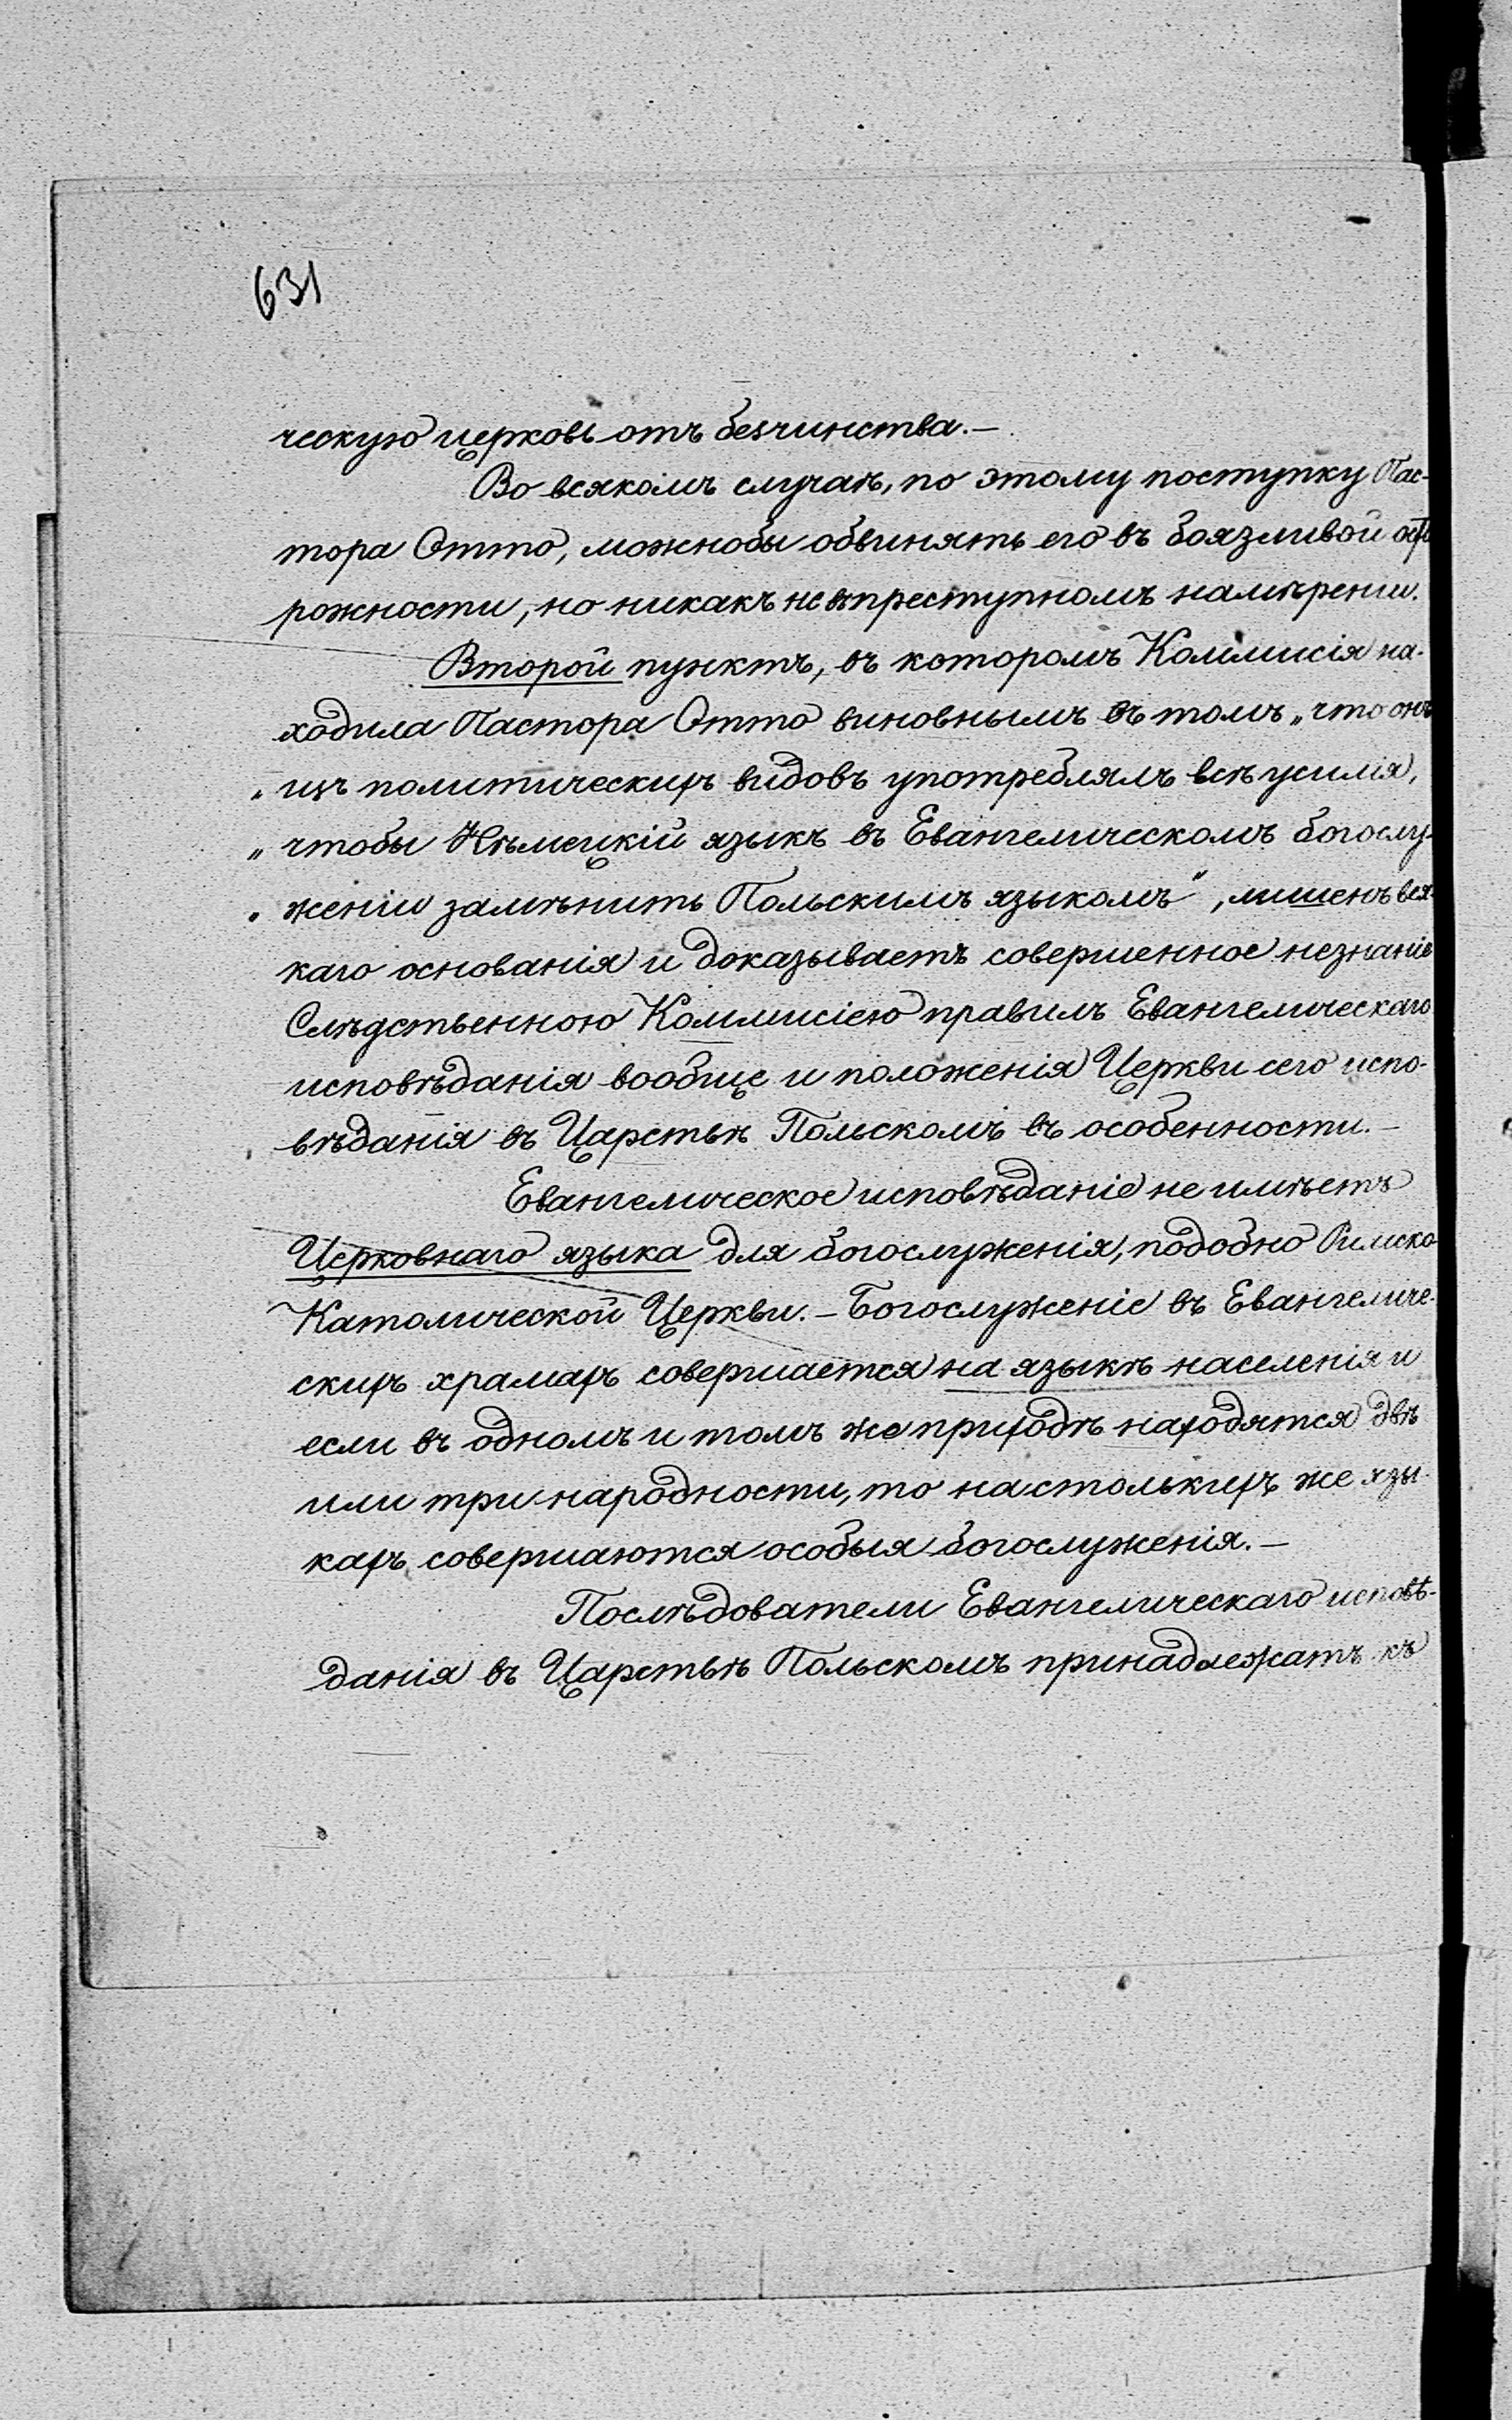 631
ческую церковь отъ безчинства.—
Во всякомъ случаѣ, по этому поступку Пас-
тора Отто, можнобы обвинять его въ боязливой осто
рожности, но никакъ не въ преступномъ намѣреніи.
Второй пунктъ, въ которомъ Коммисія на-
ходила Пастора Отто виновнымъ въ томъ „что онъ
„изъ политическихъ видовъ употреблялъ всѣ усилія,
„чтобы Нѣмецкій языкъ въ Евангелическомъ богослу-
„женіи замѣнить Польскимъ языкомъ“, лишенъ вся-
каго основанія и доказываетъ совершенное незнаніе
Слѣдственною Коммисіею правилъ Евангелическаго
исповѣданія вообще и положенія Церкви сего испо-
вѣданія въ Царствѣ Польскомъ въ особенности.—
Евангелическое исповѣданіе не имѣетъ
Церковнаго языка для богослуженія, подобно Римско-
Католической Церкви.— Богослуженіе въ Евангеличе-
скихъ храмахъ совершается на языкѣ населенія и
если въ одномъ и томъ же приходѣ находятся двѣ
или три народности, то на столькихъ же язы-
кахъ совершаются особыя богослуженія.—
Послѣдователи Евангелическаго исповѣ-
данія въ Царствѣ Польскомъ принадлежатъ къ